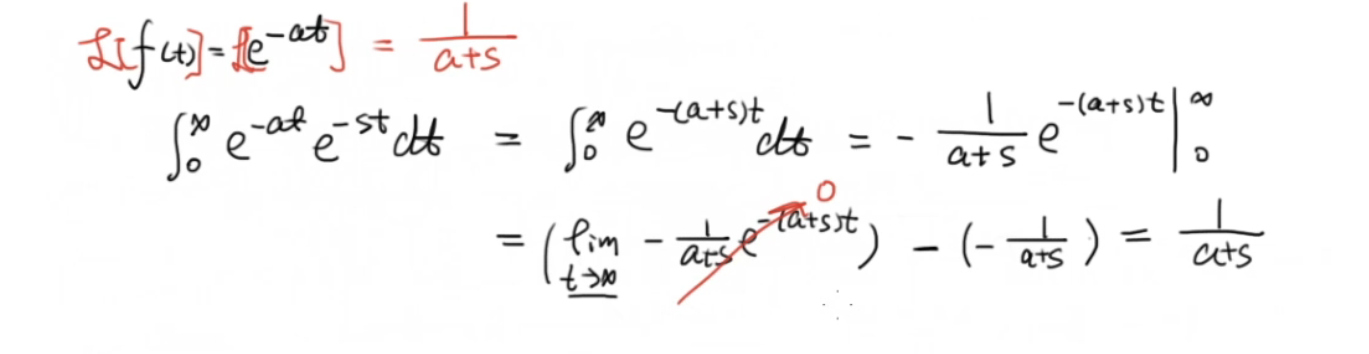 ℒ[f(t)] = ℒ[e^{-at}] = \frac{1}{a+s}
\int_0^∞ e^{-at} e^{-st} dt = \int_0^∞ e^{-(a+s)t} dt = - \frac{1}{a+s} e^{-(a+s)t} |_0^∞
= ( \lim_{t→∞} - \frac{1}{a+s} e^{-(a+s)t} ) 0 - ( - \frac{1}{a+s} ) = \frac{1}{a+s}